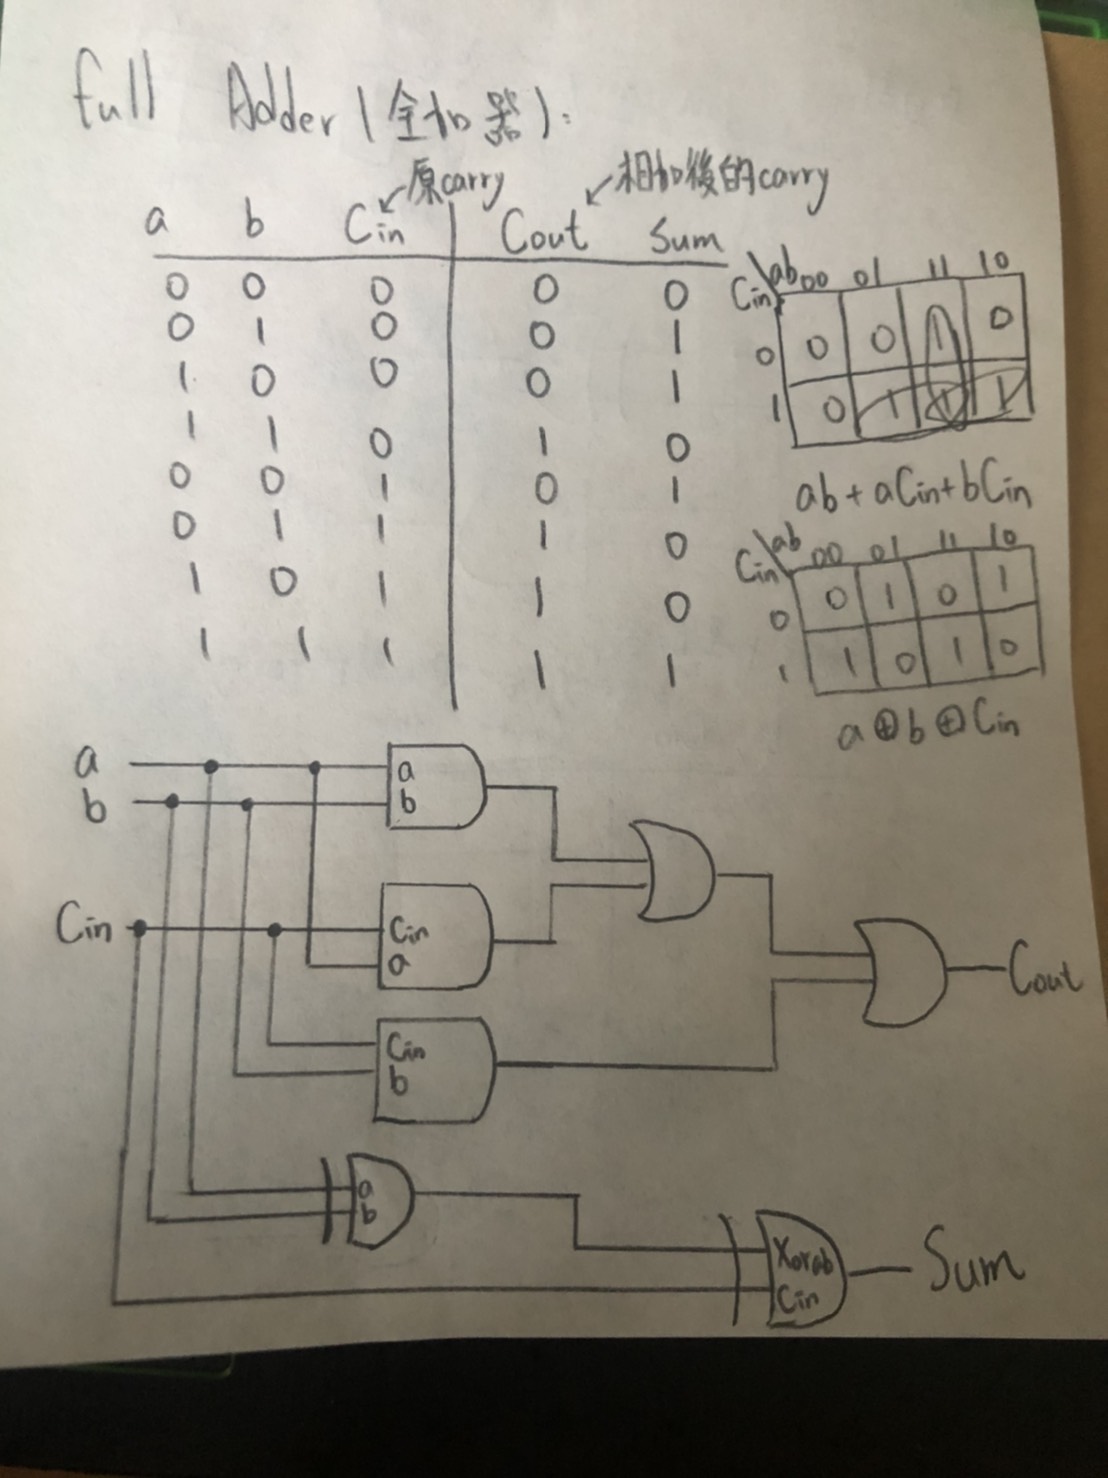 full Adder (全加器):
原carry 相加後的carry
a b Cin Cout Sum
0 0 0 0 0
0 1 0 0 1
1 0 0 0 1
1 1 0 1 0
0 0 1 0 1
0 1 1 1 0
1 0 1 1 0
1 1 1 1 1
Cin\ab 00 01 11 10
0 0 0 1 0
1 0 1 1 1
ab + aCin + bCin
Cin\ab 00 01 11 10
0 0 1 0 1
1 1 0 1 0
a ⊕ b ⊕ Cin
a
b
a
b
Cin
Cin
a
Cout
Cin
b
a
b
Xorab
Cin
Sum